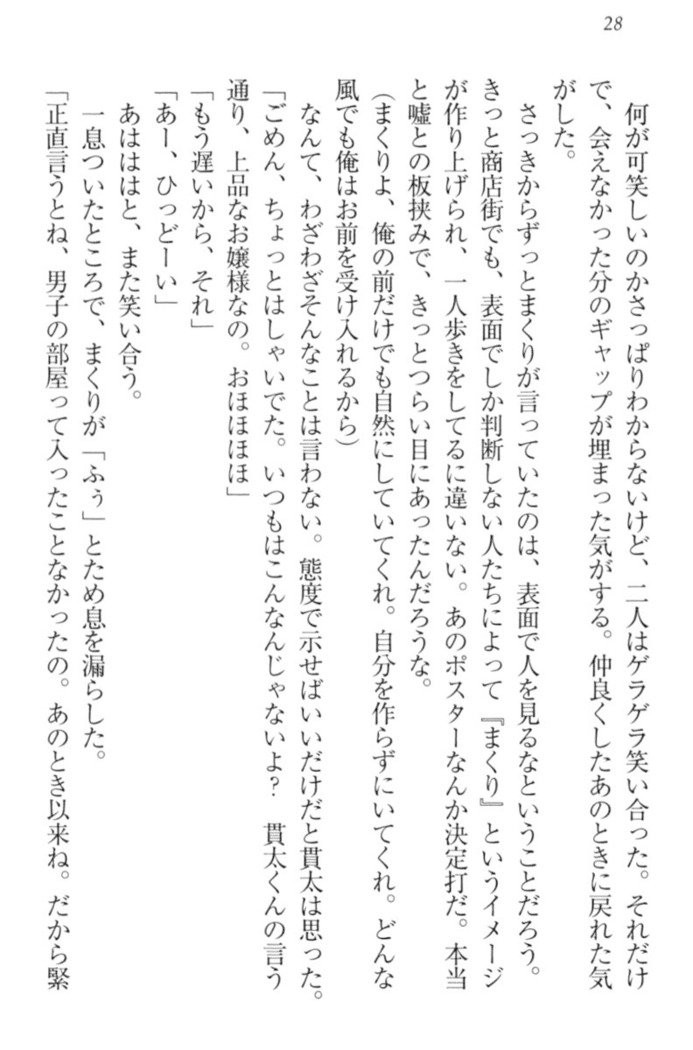 28
何が可笑しいのかさっぱりわからないけど、二人はゲラゲラ笑い合った。それだけ
で、会えなかった分のギャップが埋まった気がする。仲良くしたあのときに戻れた気
がした。
さっきからずっとまくりが言っていたのは、表面で人を見るなということだろう。
きっと商店街でも、表面でしか判断しない人たちによって『まくり』というイメージ
が作り上げられ、一人歩きをしてるに違いない。あのポスターなんか決定打だ。本当
と嘘との板挟みで、きっとつらい目にあったんだろうな。
（まくりよ、俺の前だけでも自然にしていてくれ。自分を作らずにいてくれ。どんな
風でも俺はお前を受け入れるから）
なんて、わざわざそんなことは言わない。態度で示せばいいだけだと貫太は思った。
「ごめん、ちょっとはしゃいでた。いつもはこんなんじゃないよ？　貫太くんの言う
通り、上品なお嬢様なの。おほほほほ」
「もう遅いから、それ」
「あー、ひっどーい」
あはははと、また笑い合う。
一息ついたところで、まくりが「ふぅ」とため息を漏らした。
「正直言うとね、男子の部屋って入ったことなかったの。あのとき以来ね。だから緊